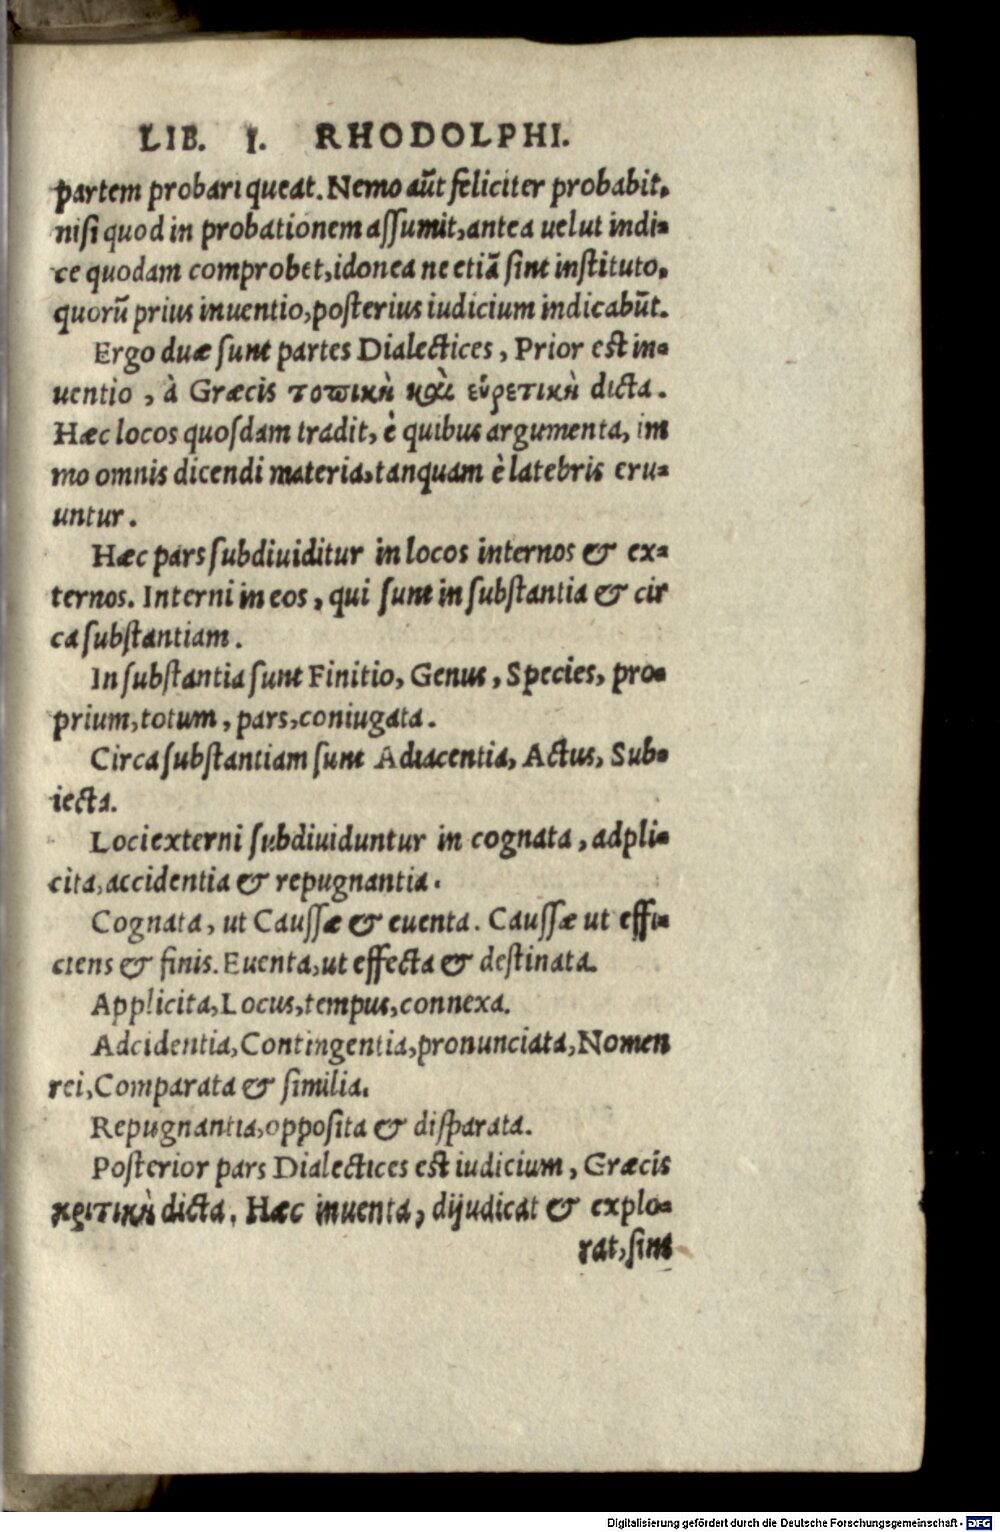 LIB. I. RHODOLPHI.
partem probari queat. Nemo aūt feliciter probabit,
nisi quod in probationem assumit, antea uelut indi-
ce quodam comprobet, idonea ne etiā sint instituto,
quorū prius inuentio, posterius iudicium indicabūt.
Ergo duæ sunt partes Dialectices, Prior est in-
uentio, à Græcis τοπικὴ καὶ εὑρετικὴ dicta.
Hæc locos quosdam tradit, è quibus argumenta, im
mo omnis dicendi materia, tanquam è latebris eru-
untur.
Hæc pars subdiuiditur in locos internos & ex-
ternos. Interni in eos, qui sunt in substantia & cir
ca substantiam.
In substantia sunt Finitio, Genus, Species, pro-
prium, totum, pars, coniugata.
Circa substantiam sunt Adiacentia, Actus, Sub-
iecta.
Loci externi subdiuiduntur in cognata, adpli-
cita, accidentia & repugnantia.
Cognata, ut Caussæ & euenta. Caussæ ut effi-
ciens & finis. Euenta, ut effecta & destinata.
Applicita, Locus, tempus, connexa.
Adcidentia, Contingentia, pronunciata, Nomen
rei, Comparata & similia.
Repugnantia, opposita & disparata.
Posterior pars Dialectices est iudicium, Græcis
κριτικὴ dicta. Hæc inuenta, dijudicat & explo-
rat, sint
Digitalisierung gefördert durch die Deutsche Forschungsgemeinschaft - DFG